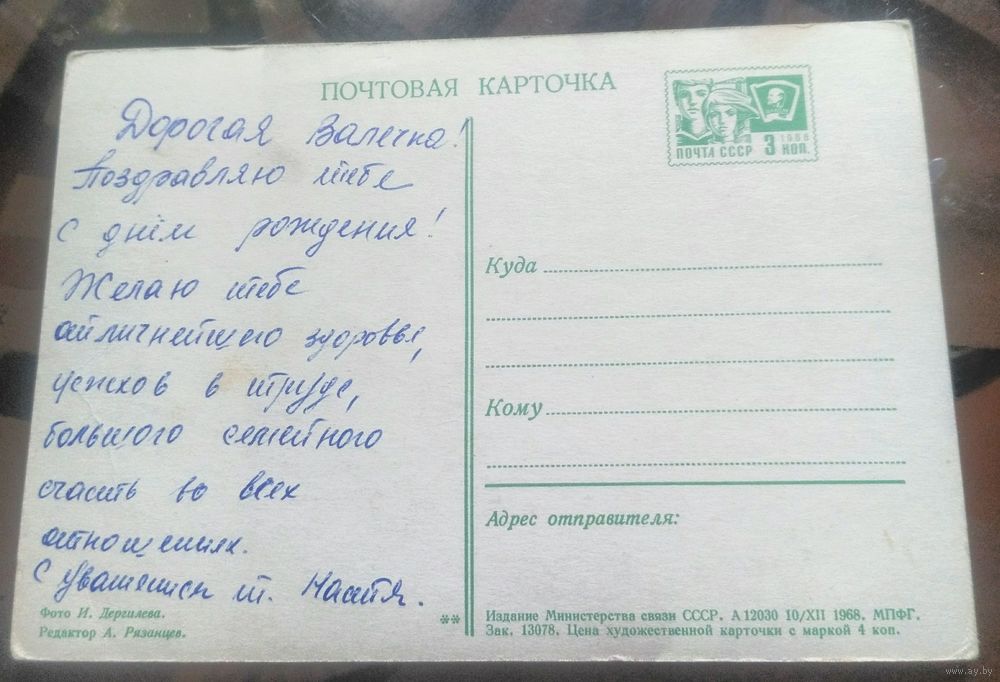 ПОЧТОВАЯ КАРТОЧКА
1966
ПОЧТА СССР 3 КОП.
Дорогая Валечка!
Поздравляю тебе
с днём рождения!
Желаю тебе
отличнейшего здоровья,
успехов в труде,
большого семейного
счасть во всех
отношениях.
С уважением т. Настя.
Фото И. Дергилева.
Редактор А. Рязанцев.
**
Куда
Кому
Адрес отправителя:
Издание Министерства связи СССР. А 12030 10/XII 1968. МПФГ.
Зак. 13078. Цена художественной карточки с маркой 4 коп.
www.ay.by